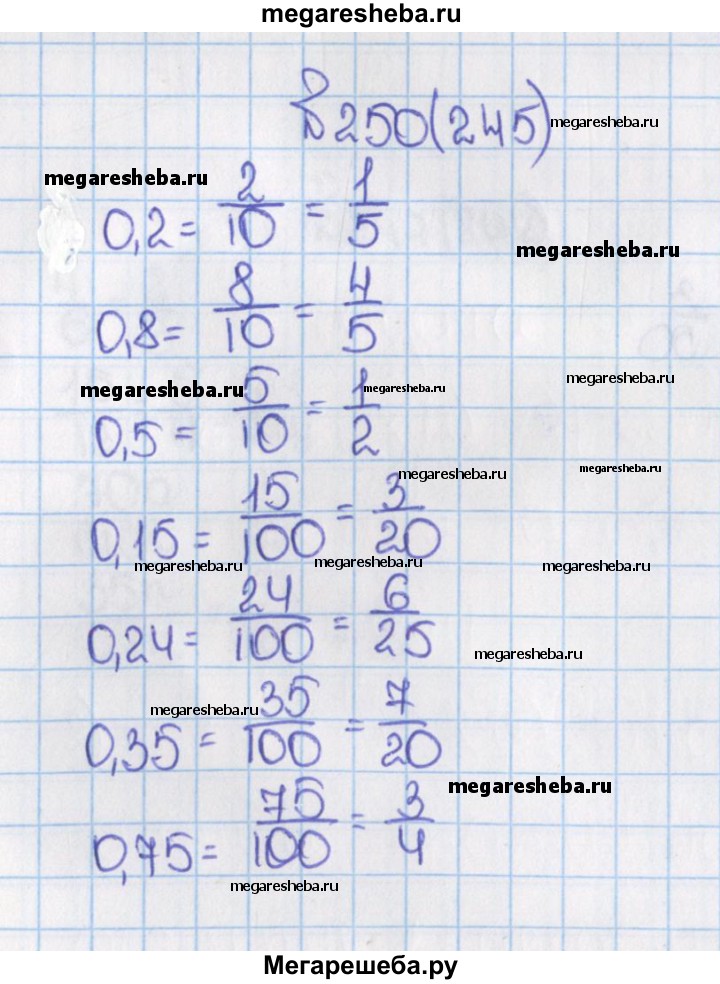 megaresheba.ru
№ 250 (245) megaresheba.ru
megaresheba.ru
0,2 = 2/10 = 1/5
megaresheba.ru
0,8 = 8/10 = 4/5
megaresheba.ru megaresheba.ru megaresheba.ru
0,5 = 5/10 = 1/2
megaresheba.ru megaresheba.ru
0,15 = 15/100 = 3/20
megaresheba.ru megaresheba.ru megaresheba.ru
0,24 = 24/100 = 6/25
megaresheba.ru
megaresheba.ru
0,35 = 35/100 = 7/20
megaresheba.ru
0,75 = 75/100 = 3/4
megaresheba.ru
Мегарешеба.ру